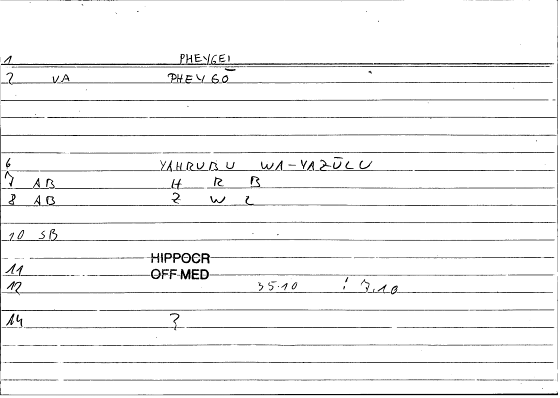 1 PHEYGEI
2 VA PHEYGŌ
6 YAHRUBU WA-YAZŪLU
7 AB H R B
8 AB Z W L
10 SB
11 HIPPOCR
OFF-MED
12 35.10 : 7.10
14 ?